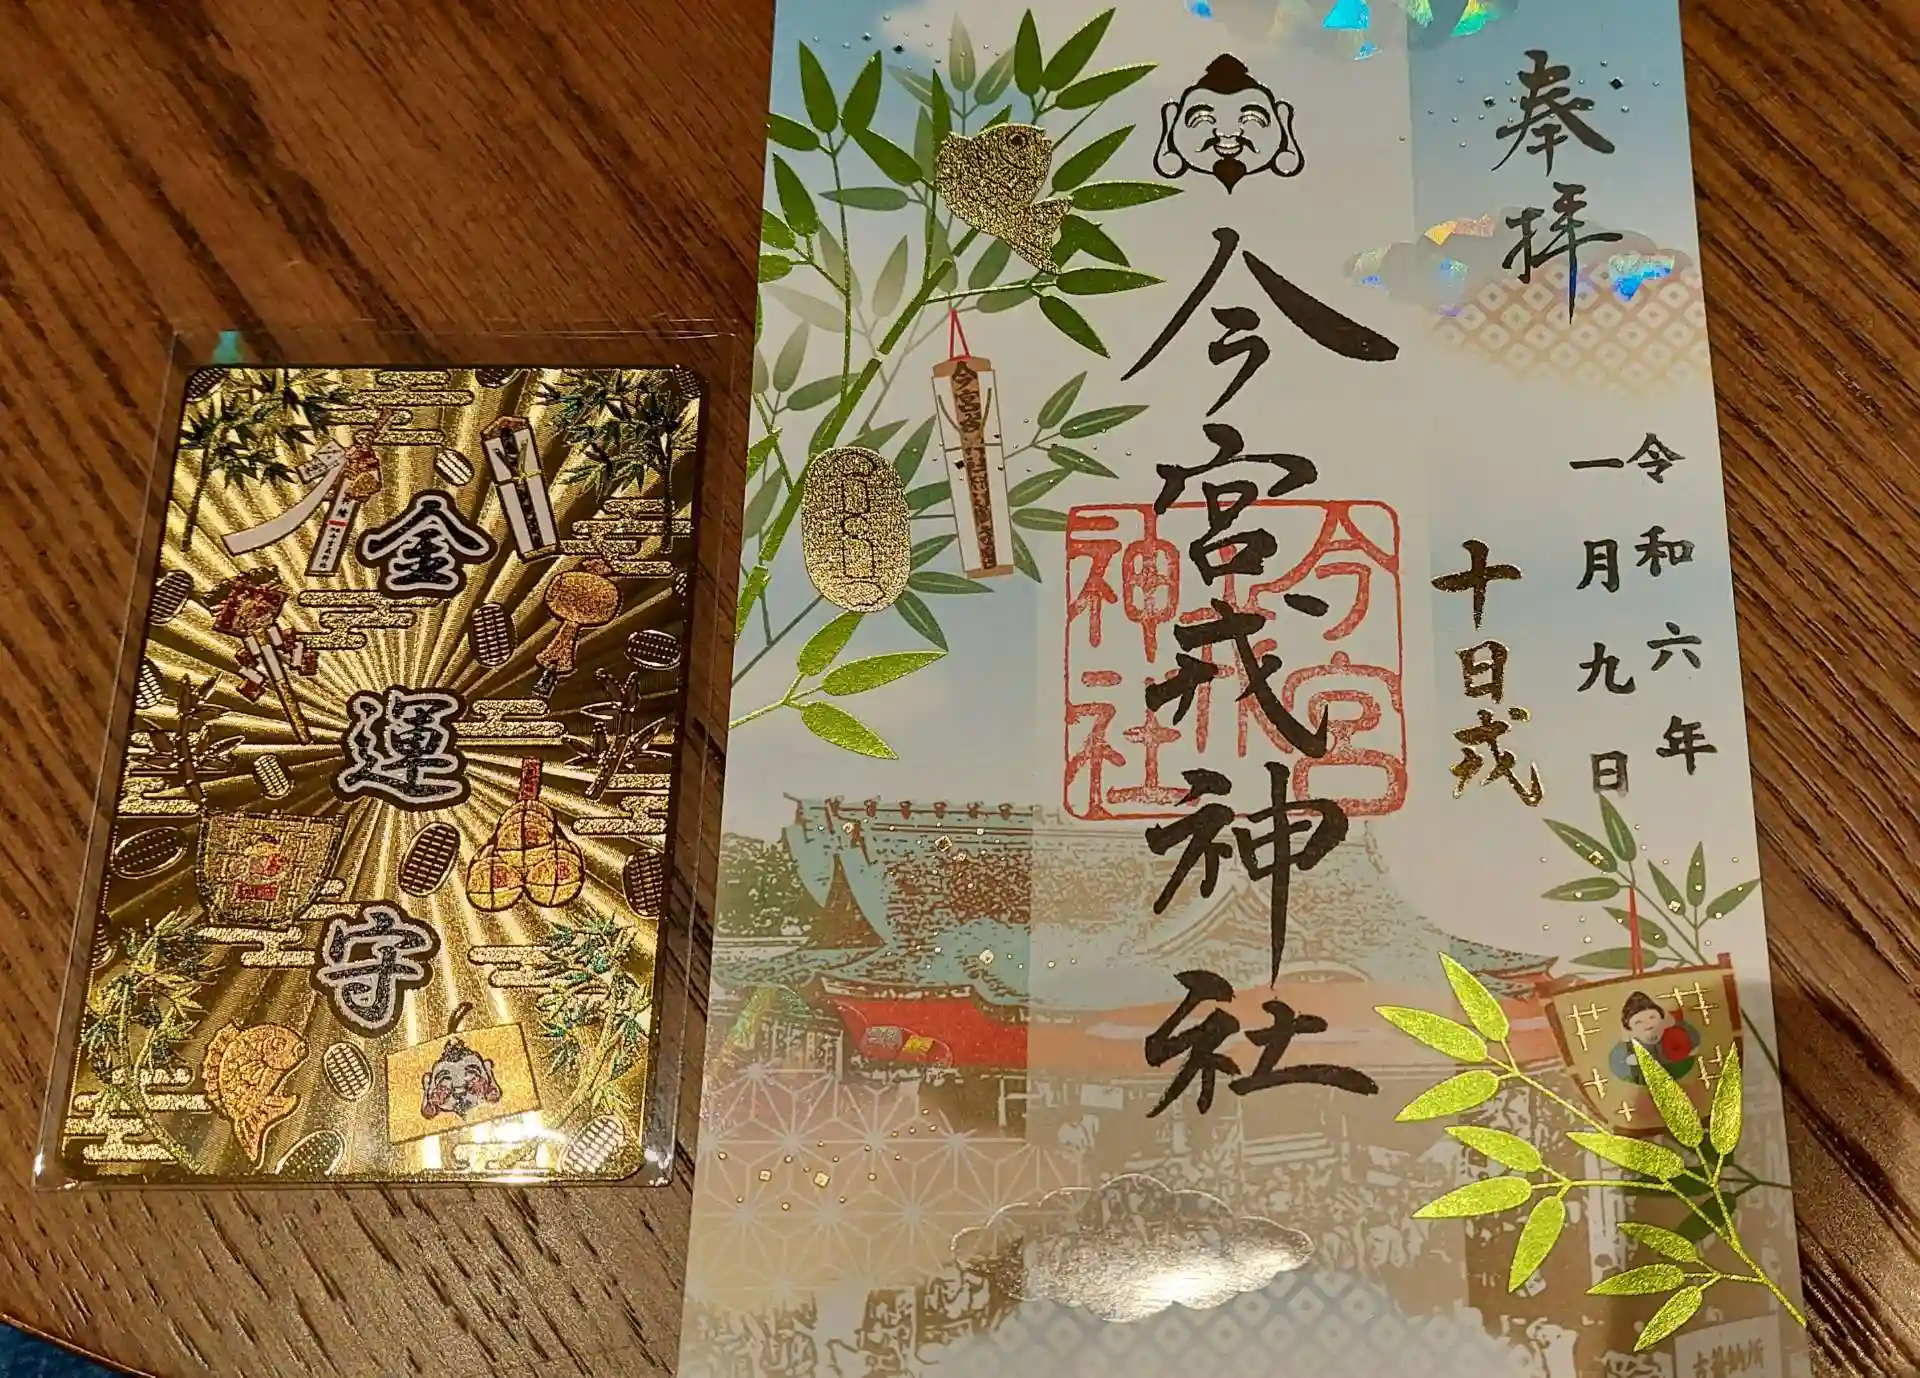 奉拝
令和六年
一月九日
十日戎
今宮戎神社
今宮戎神社
金運守